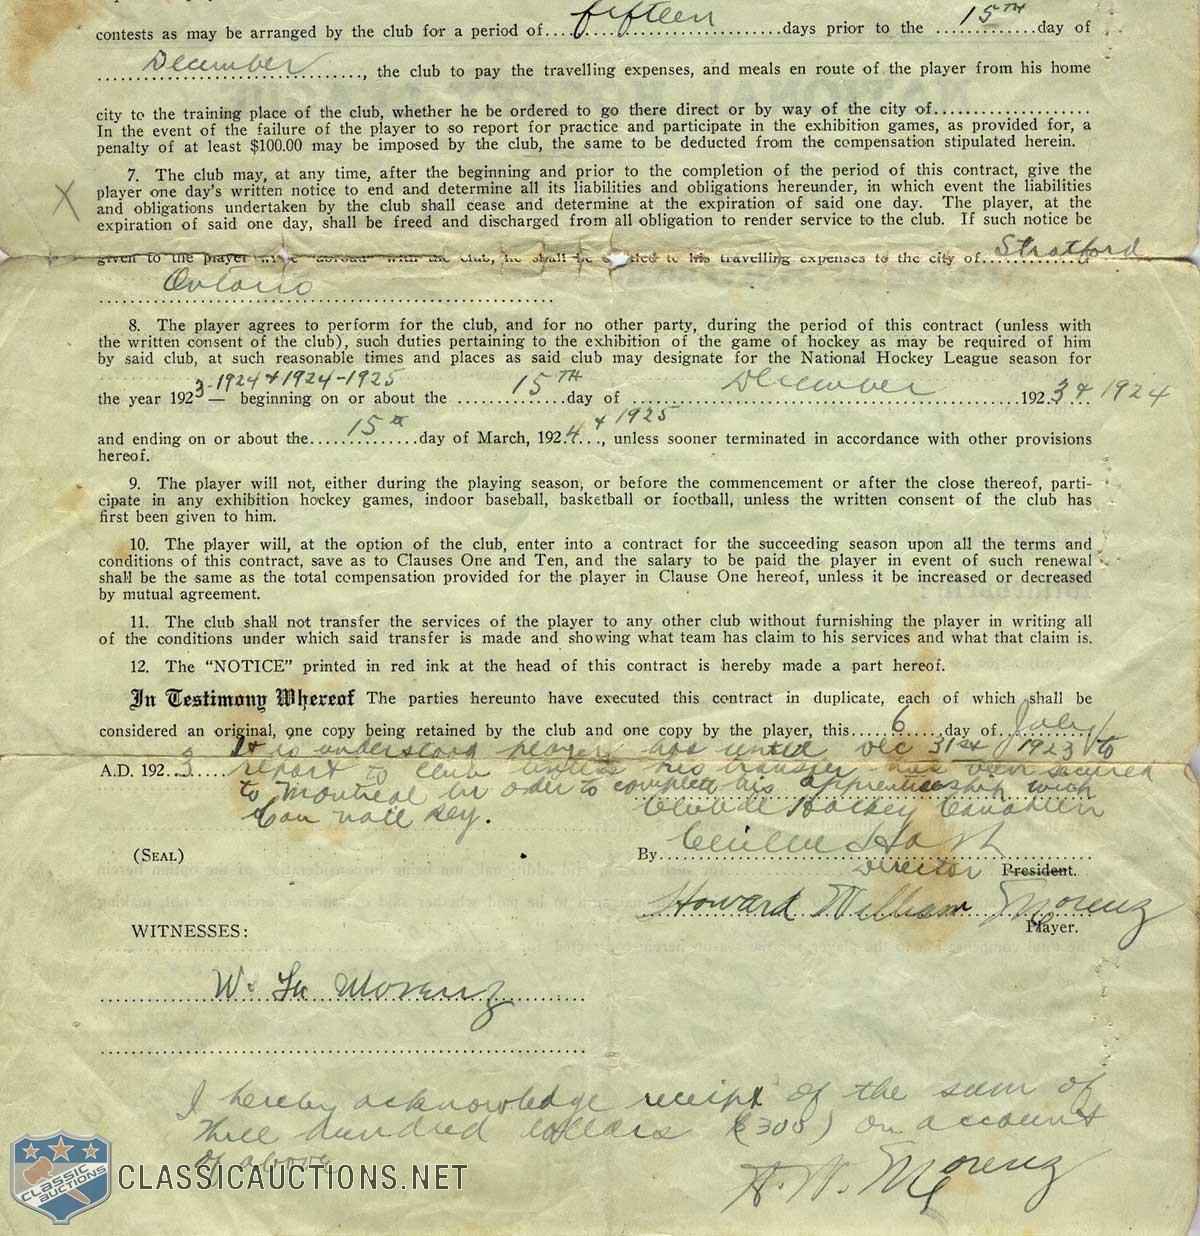 contests as may be arranged by the club for a period of....fifteen....days prior to the ....15TH....day of
....December...., the club to pay the travelling expenses, and meals en route of the player from his home
city to the training place of the club, whether he be ordered to go there direct or by way of the city of....................
In the event of the failure of the player to so report for practice and participate in the exhibition games, as provided for, a
penalty of at least $100.00 may be imposed by the club, the same to be deducted from the compensation stipulated herein.
7. The club may, at any time, after the beginning and prior to the completion of the period of this contract, give the
X player one day's written notice to end and determine all its liabilities and obligations hereunder, in which event the liabilities
and obligations undertaken by the club shall cease and determine at the expiration of said one day. The player, at the
expiration of said one day, shall be freed and discharged from all obligation to render service to the club. If such notice be
given to the player "abroad" with the club, he shall be to his travelling expenses to the city of....Stratford
Ontario
8. The player agrees to perform for the club, and for no other party, during the period of this contract (unless with
the written consent of the club), such duties pertaining to the exhibition of the game of hockey as may be required of him
by said club, at such reasonable times and places as said club may designate for the National Hockey League season for
the year 1923-1924 & 1924-1925 — beginning on or about the ....15TH....day of ....December....1923 & 1924
and ending on or about the....15th....day of March, 1924 & 1925..., unless sooner terminated in accordance with other provisions
hereof.
9. The player will not, either during the playing season, or before the commencement or after the close thereof, parti-
cipate in any exhibition hockey games, indoor baseball, basketball or football, unless the written consent of the club has
first been given to him.
10. The player will, at the option of the club, enter into a contract for the succeeding season upon all the terms and
conditions of this contract, save as to Clauses One and Ten, and the salary to be paid the player in event of such renewal
shall be the same as the total compensation provided for the player in Clause One hereof, unless it be increased or decreased
by mutual agreement.
11. The club shall not transfer the services of the player to any other club without furnishing the player in writing all
of the conditions under which said transfer is made and showing what team has claim to his services and what that claim is.
12. The "NOTICE" printed in red ink at the head of this contract is hereby made a part hereof.
In Testimony Whereof The parties hereunto have executed this contract in duplicate, each of which shall be
considered an original, one copy being retained by the club and one copy by the player, this....6....day of....July
It is understood player has until Dec 31st 1923 to
A.D. 1923.... report to club unless his transfer has been secured
to Montreal in order to complete his apprenticeship with
Can Natl Rey.
Club de Hockey Canadien
(SEAL)
By....Cecil Hart
Director President.
Howard William Morenz
Player.
WITNESSES:
W. Morenz
I hereby acknowledge receipt of the sum of
three hundred dollars ($300) on account
of above
H. W. Morenz
CLASSIC AUCTIONS
CLASSICAUCTIONS.NET